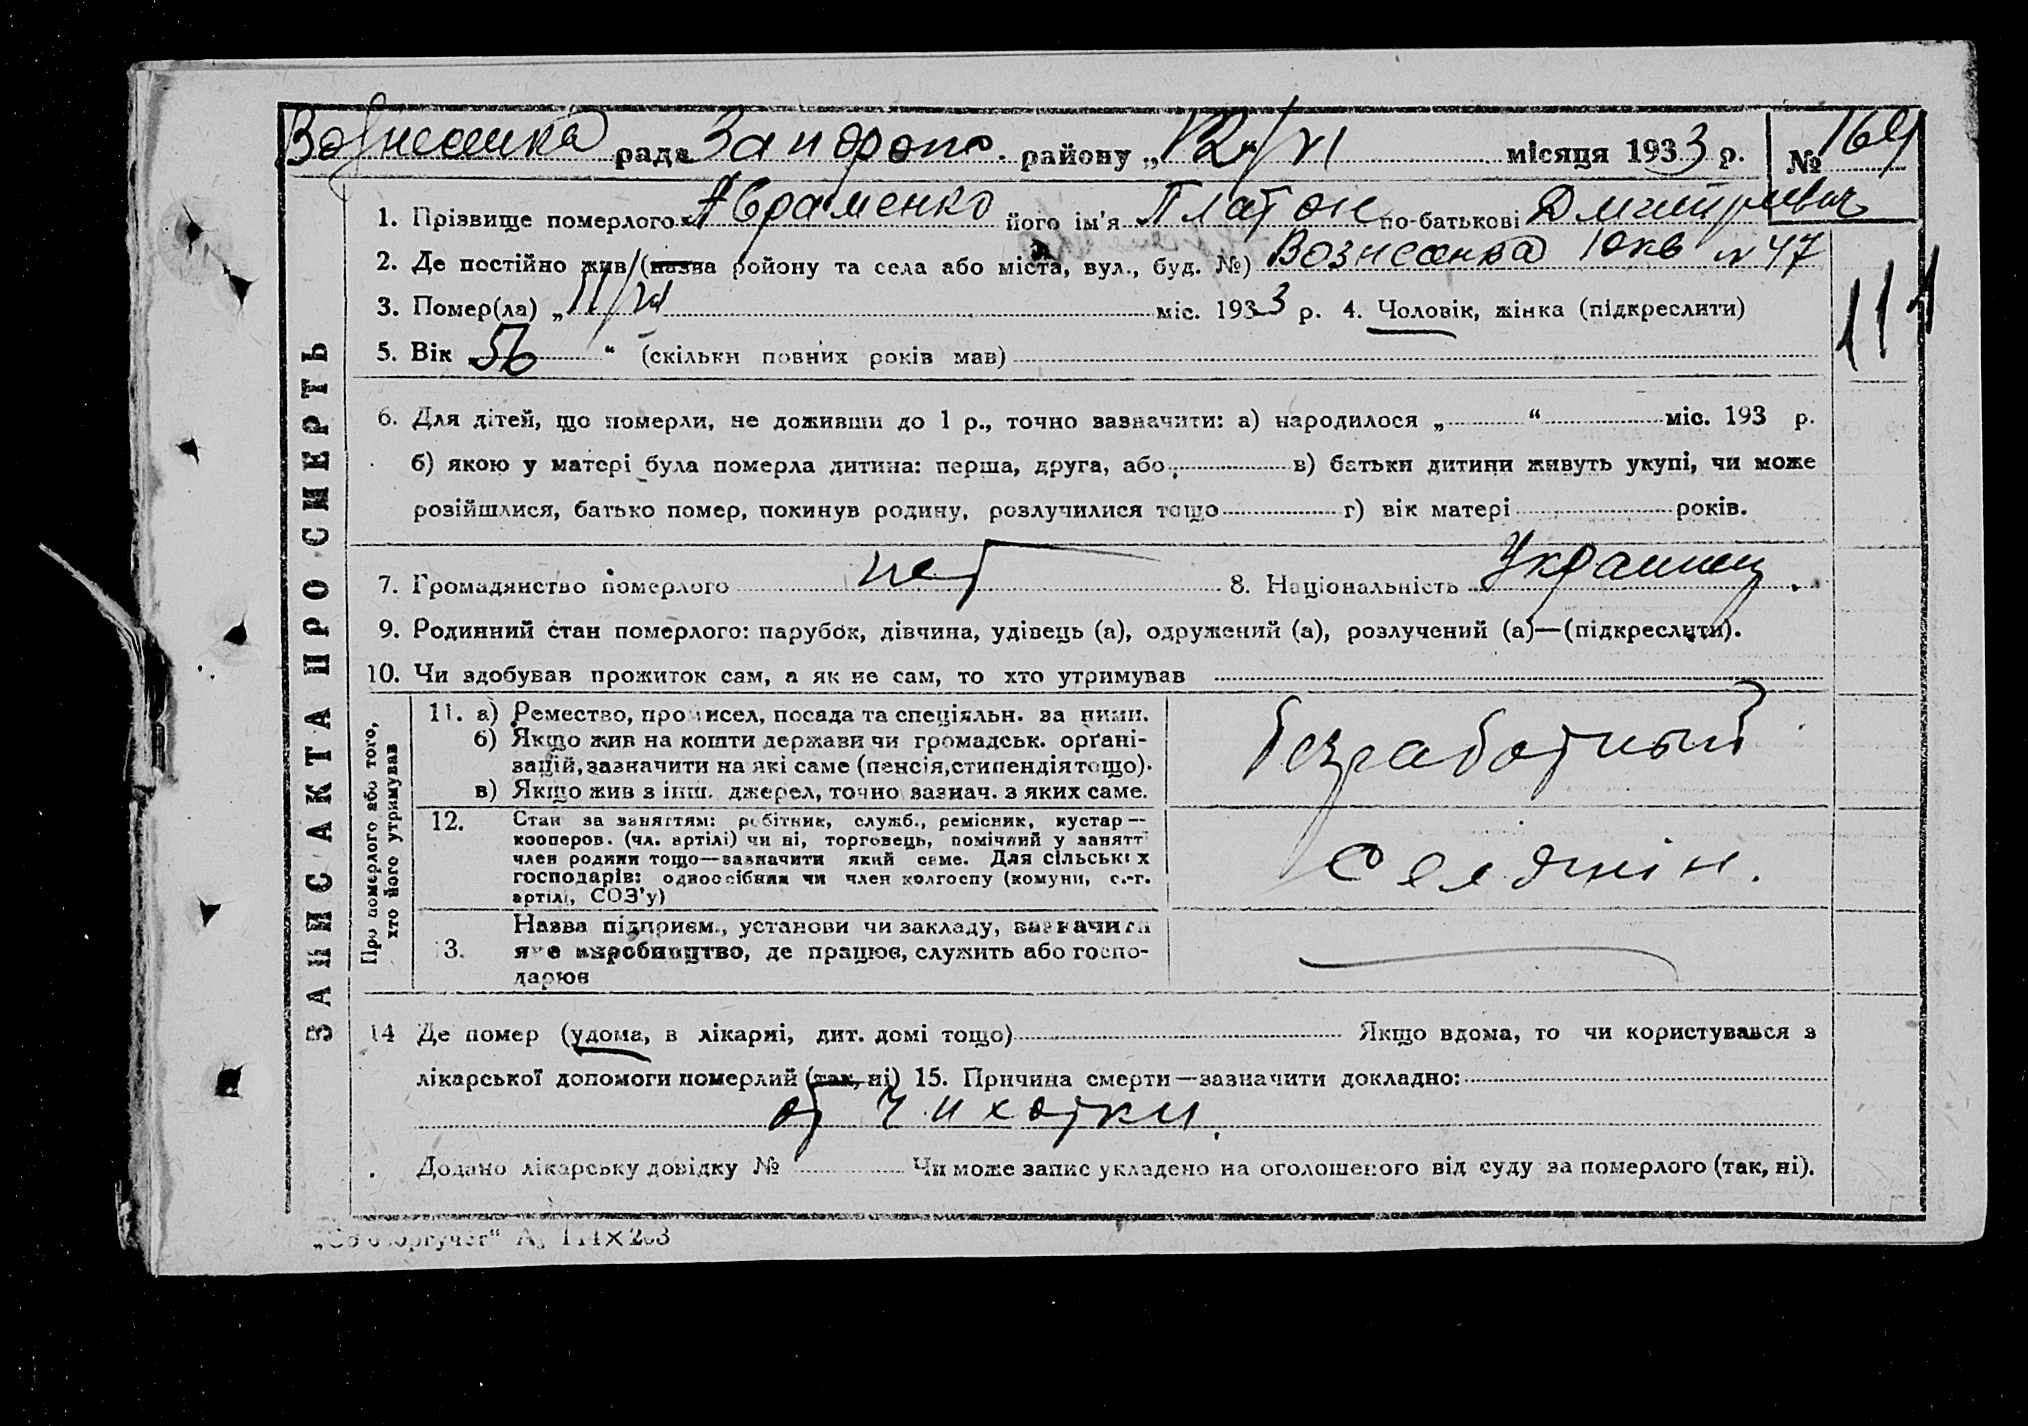 Вознесенка рада Запорож. району „12“/VI місяця 1933 р. № 169
1. Прізвище померлого Авраменко його ім'я Платон по-батькові Дмитриевич
2. Де постійно жив (назва ройону та села або міста, вул., буд. №) Вознесенка 10 кв № 47
3. Помер(ла) „11/VI міс. 1933 р. 4. Чоловік, жінка (підкреслити)
111
5. Вік 56 “ (скільки повних років мав)
6. Для дітей, що померли, не доживши до 1 р., точно вазначити: а) народилося „ “ міс. 193 р.
б) якою у матері була померла дитина: перша, друга, або в) батьки дитини живуть укупі, чи може
розійшлися, батько помер, покинув родину, розлучилися тощо г) вік матері років.
7. Громадянство померлого нет 8. Національність Украинец.
9. Родинний стан померлого: парубок, дівчина, удівець (а), одружений (а), розлучений (а)—(підкреслити).
10. Чи здобував прожиток сам, а як не сам, то хто утримував
ЗАПИС АКТА ПРО СМЕРТЬ
Про померлого або того,
хто його утримував
11. а) Ремество, промисел, посада та спеціяльн. за ними.
б) Якщо жив на кошти держави чи громадськ. орґані-
зацій, зазначити на які саме (пенсія, стипендія тощо).
в) Якщо жив з інш. джерел, точно вазнач. з яких саме.
безработный
12. Стан за заняттям: робітник, служб., ремісник, кустар —
кооперов. (чл. артілі) чи ні, торговець, помічний у занятт
член родини тощо—зазначити який саме. Для сільських
господарів: одноосібник чи член колгоспу (комуни, с.-г.
артілі, СОЗ'у)
Селянін.
13. Назва підприєм., установи чи закладу, вазначити
яке виробництво, де працює, служить або госпо-
дарює
14 Де помер (удома, в лікарні, дит. домі тощо) Якщо вдома, то чи користувався з
лікарської допомоги померлий (так, ні) 15. Причина смерти—зазначити докладно:
от чихотки.
Додано лікарську довідку № Чи може запис укладено на оголошеного від суду за померлого (так, ні).